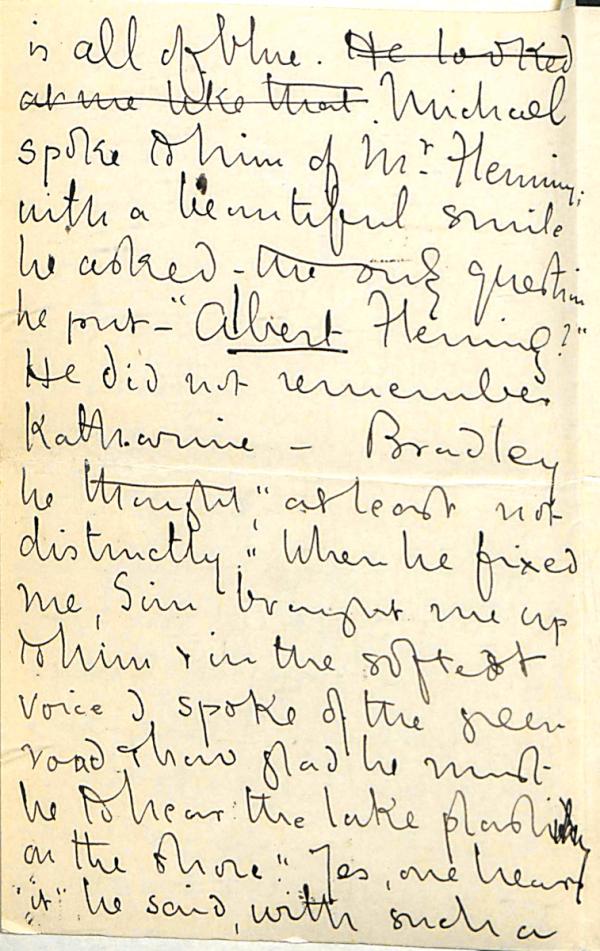 is all of blue. ~~He looked~~
~~at me like that~~. Michael
spoke to him of Mr. Fleming;
with a beautiful smile
he asked - the only question
he put - "Albert Fleming?"
He did not remember
Katharine - Bradley
he thought, "at least not
distinctly". When he fixed
me, Sim brought me up
to him & in the softest
voice I spoke of the green
road & how glad he must
be to hear the lake plashing
on the shore: "Yes, one hears
"it" he said, with such a